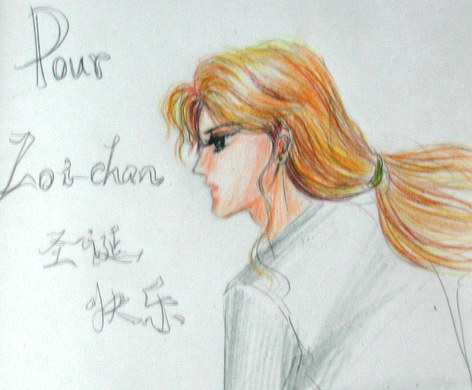 Pour
Zoi-chan
圣诞,
快乐